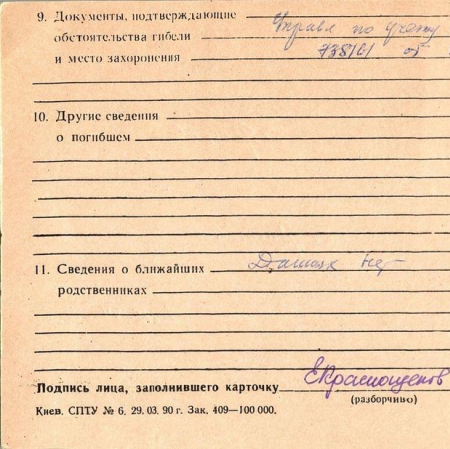 9. Документы, подтверждающие Управл по учету
обстоятельства гибели
и место захоронения
10. Другие сведения
о погибшем
11. Сведения о ближайших Данных нет
родственниках
Подпись лица, заполнившего карточку ЕКраснощеков
(разборчиво)
Киев. СПТУ № 6, 29. 03. 90 г. Зак. 409—100 000.